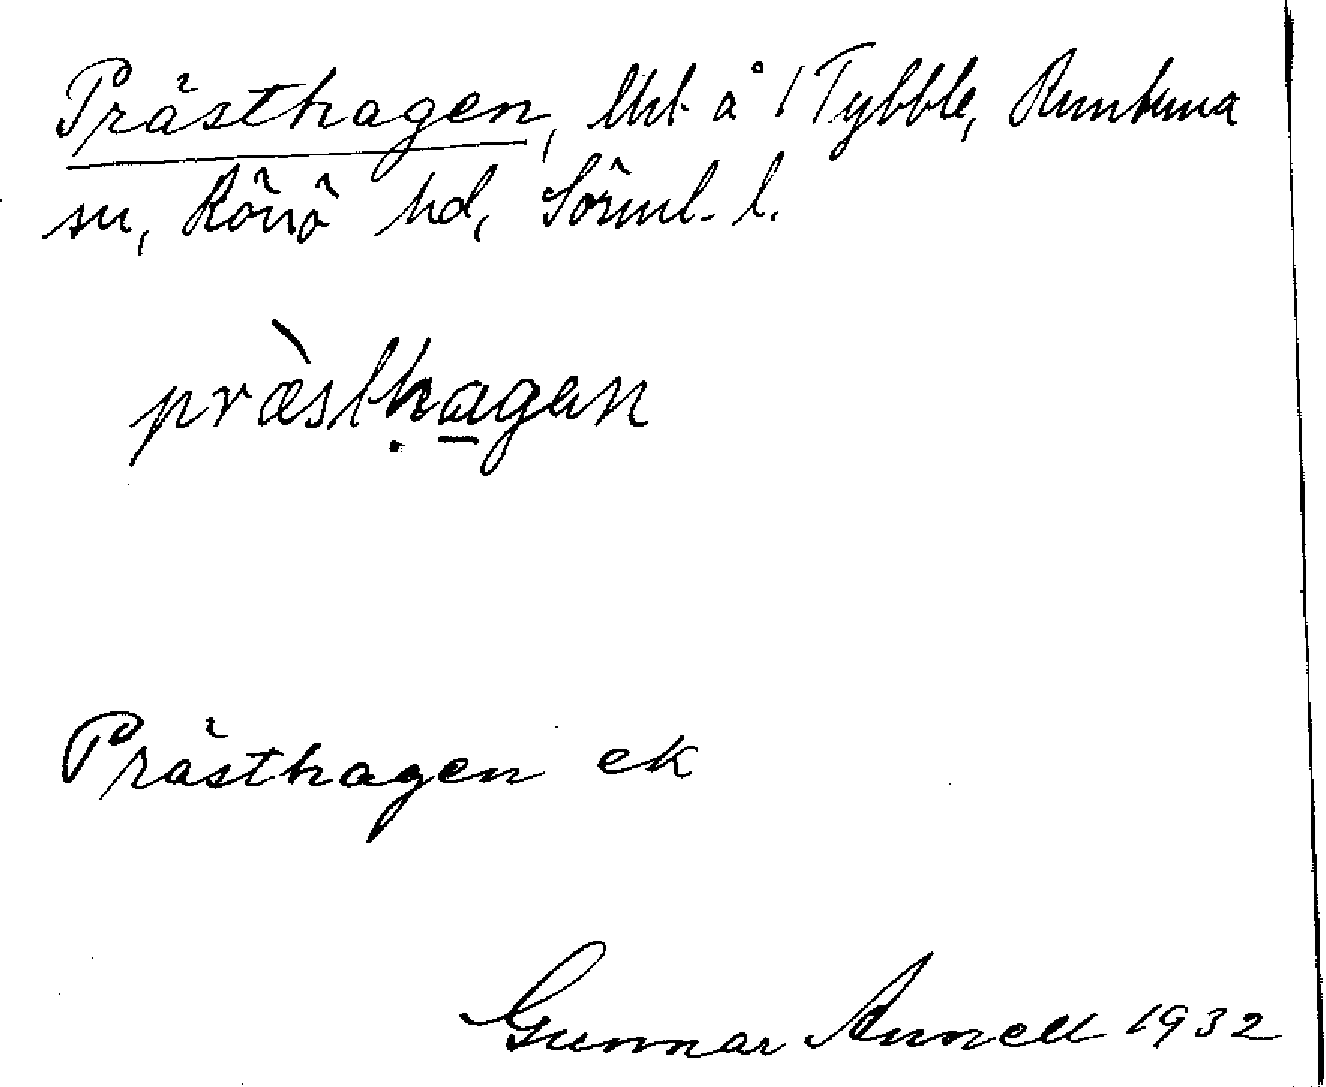 Prästhagen, lht å 1 Tybble, Runtuna
sn, Rönö hd, Sörml. l.
præ̀stḥa̱gan
Prästhagen ek
Gunnar Annell 1932